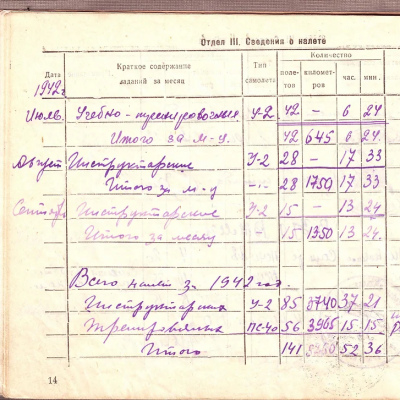 Отдел III. Сведения о налете
Дата
1942г
Краткое содержание заданий за месяц
Тип самолета
Количество
полетов
километров
час.
мин.
Июль Учебно-тренировочные У-2 42 — 6 24
Итого за м-ц. 42 645 6 24
Август Инструкторские У-2 28 — 17 33
Итого за м-ц -"- 28 1759 17 33
Сентябрь Инструкторские У-2 15 — 13 24
Итого за месяц 15 1350 13 24
Всего налет за 1942 год.
Инструкторских У-2 85 3740 37 21
Тренировочных 56 3965 15 15
Итого 141 52 36
14